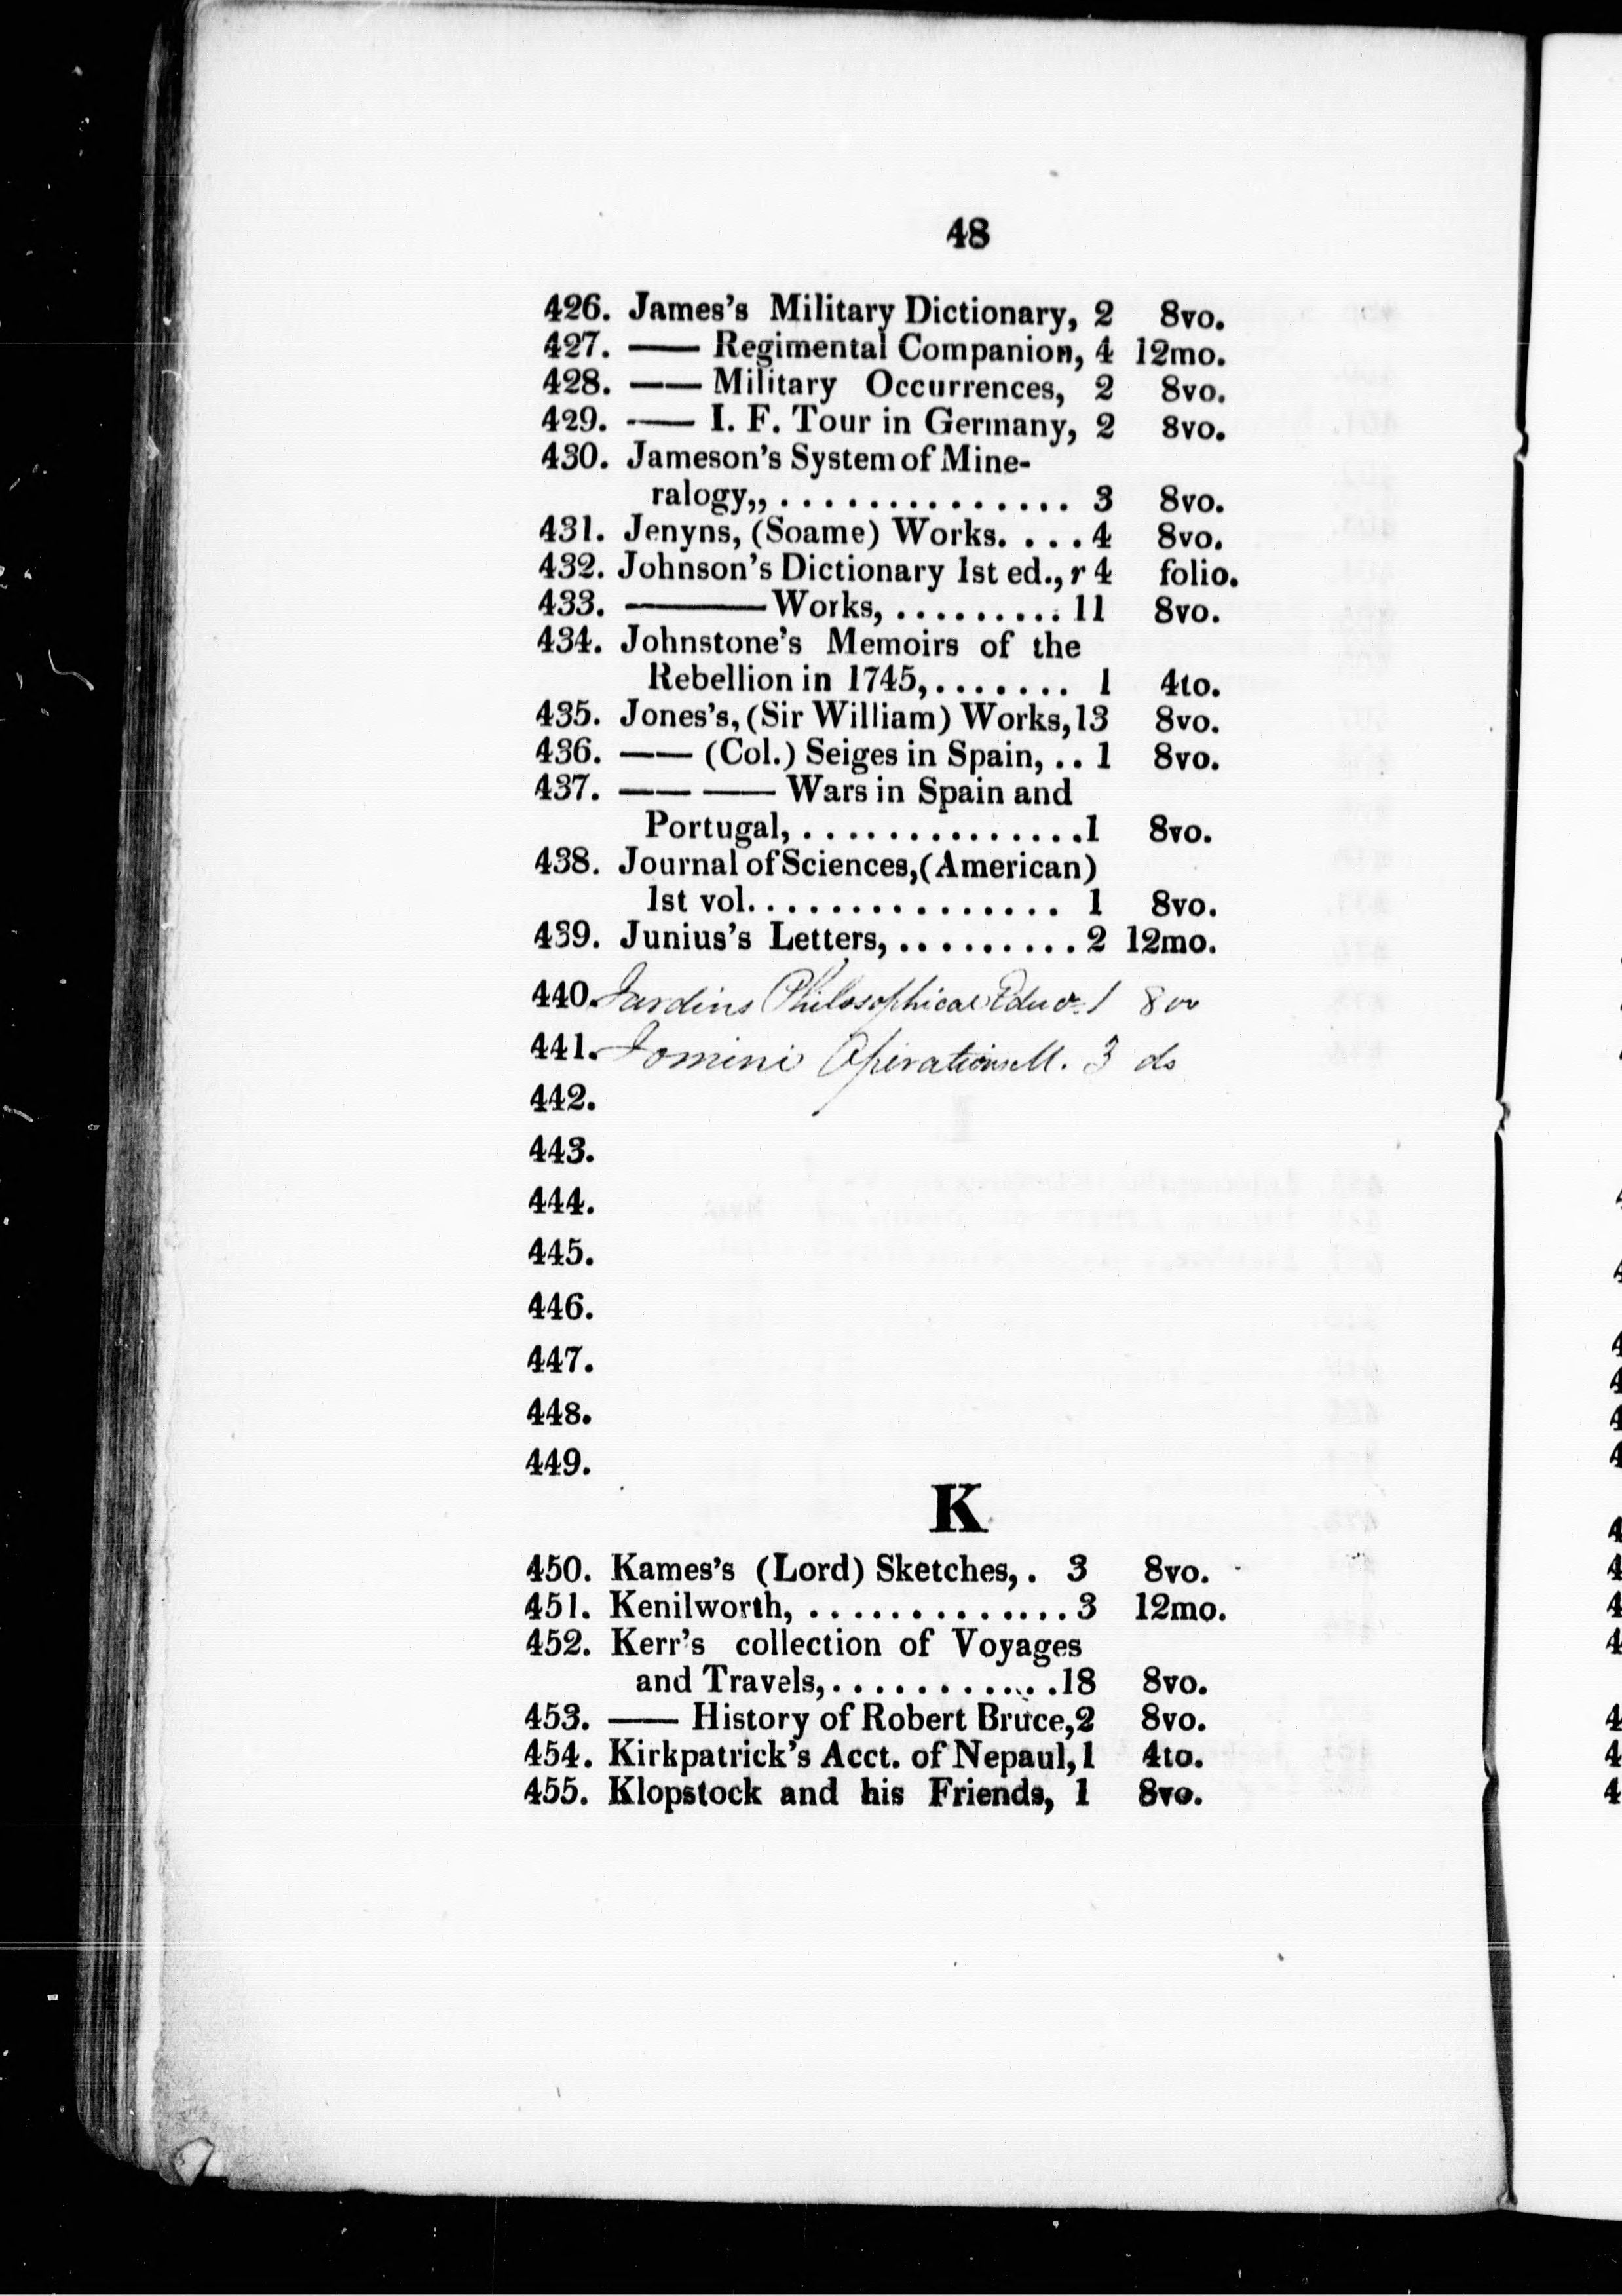 48
426. James's Military Dictionary, 2 8vo.
427. —— Regimental Companion, 4 12mo.
428. —— Military Occurrences, 2 8vo.
429. —— I. F. Tour in Germany, 2 8vo.
430. Jameson's System of Mine-
ralogy,, . . . . . . . . . . . . . . 3 8vo.
431. Jenyns, (Soame) Works. . . . 4 8vo.
432. Johnson's Dictionary 1st ed., r 4 folio.
433. ——— Works, . . . . . . . . . 11 8vo.
434. Johnstone's Memoirs of the
Rebellion in 1745, . . . . . . . 1 4to.
435. Jones's, (Sir William) Works, 13 8vo.
436. —— (Col.) Seiges in Spain, . . 1 8vo.
437. —— —— Wars in Spain and
Portugal, . . . . . . . . . . . . . . 1 8vo.
438. Journal of Sciences, (American)
1st vol. . . . . . . . . . . . . . . . 1 8vo.
439. Junius's Letters, . . . . . . . . . 2 12mo.
440. Jardins Philosophical Educn. 1 8vo
441. Jomini Operations M. 3 do
442.
443.
444.
445.
446.
447.
448.
449.
K
450. Kames's (Lord) Sketches, . 3 8vo.
451. Kenilworth, . . . . . . . . . . . . . 3 12mo.
452. Kerr's collection of Voyages
and Travels, . . . . . . . . . . . . 18 8vo.
453. —— History of Robert Bruce, 2 8vo.
454. Kirkpatrick's Acct. of Nepaul, 1 4to.
455. Klopstock and his Friends, 1 8vo.